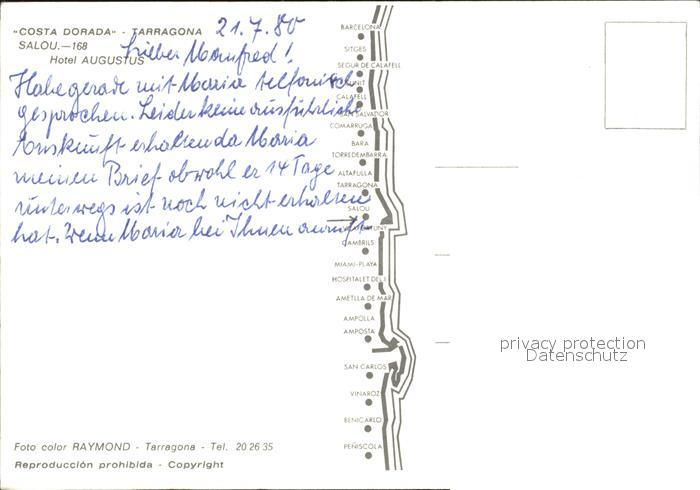 "COSTA DORADA" - TARRAGONA
SALOU.—168
Hotel AUGUSTUS
21.7.80
Lieber Manfred!
Habe gerade mit Maria telefonisch
gesprochen. Leider keine ausführliche
Auskunft erhalten da Maria
meinen Brief obwohl er 14 Tage
unterwegs ist noch nicht erhalten
hat. Wenn Maria bei Ihnen anruft
BARCELONA
SITGES
SEGUR DE CALAFELL
CALAFELL
SAN SALVADOR
COMARRUGA
BARA
TORREDEMBARRA
ALTAFULLA
TARRAGONA
SALOU
CAMBRILS
MIAMI-PLAYA
HOSPITALET DEL I.
AMETLLA DE MAR
AMPOLLA
AMPOSTA
SAN CARLOS
VINAROZ
BENICARLO
PEÑISCOLA
privacy protection
Datenschutz
Foto color RAYMOND - Tarragona - Tel. 20 26 35
Reproducción prohibida - Copyright